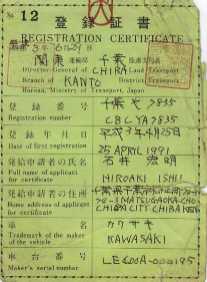 № 12 登録証書
REGISTRATION CERTIFICATE
関東 運輸局 千葉 陸運支局長
Director-General of CHIBA Land Transport
Branch of KANTO District Transport
Bureau, Ministry of Transport, Japan
登録番号
Registration number
千葉 や 7835
CBCYA7835
登録年月日
Date of first registration
平成3年4月25日
25 APRIL 1991
発給申請者の氏名
Full name of applicant for certificate
石井 宏明
HIROAKI ISHII
発給申請者の住所
Home address of applicant for certificate
CHIBA CITY CHIBA KEN
車名
Trademark of the maker of the vehicle
カワサキ
KAWASAKI
車台番号
Maker's serial number
LE600A-000195